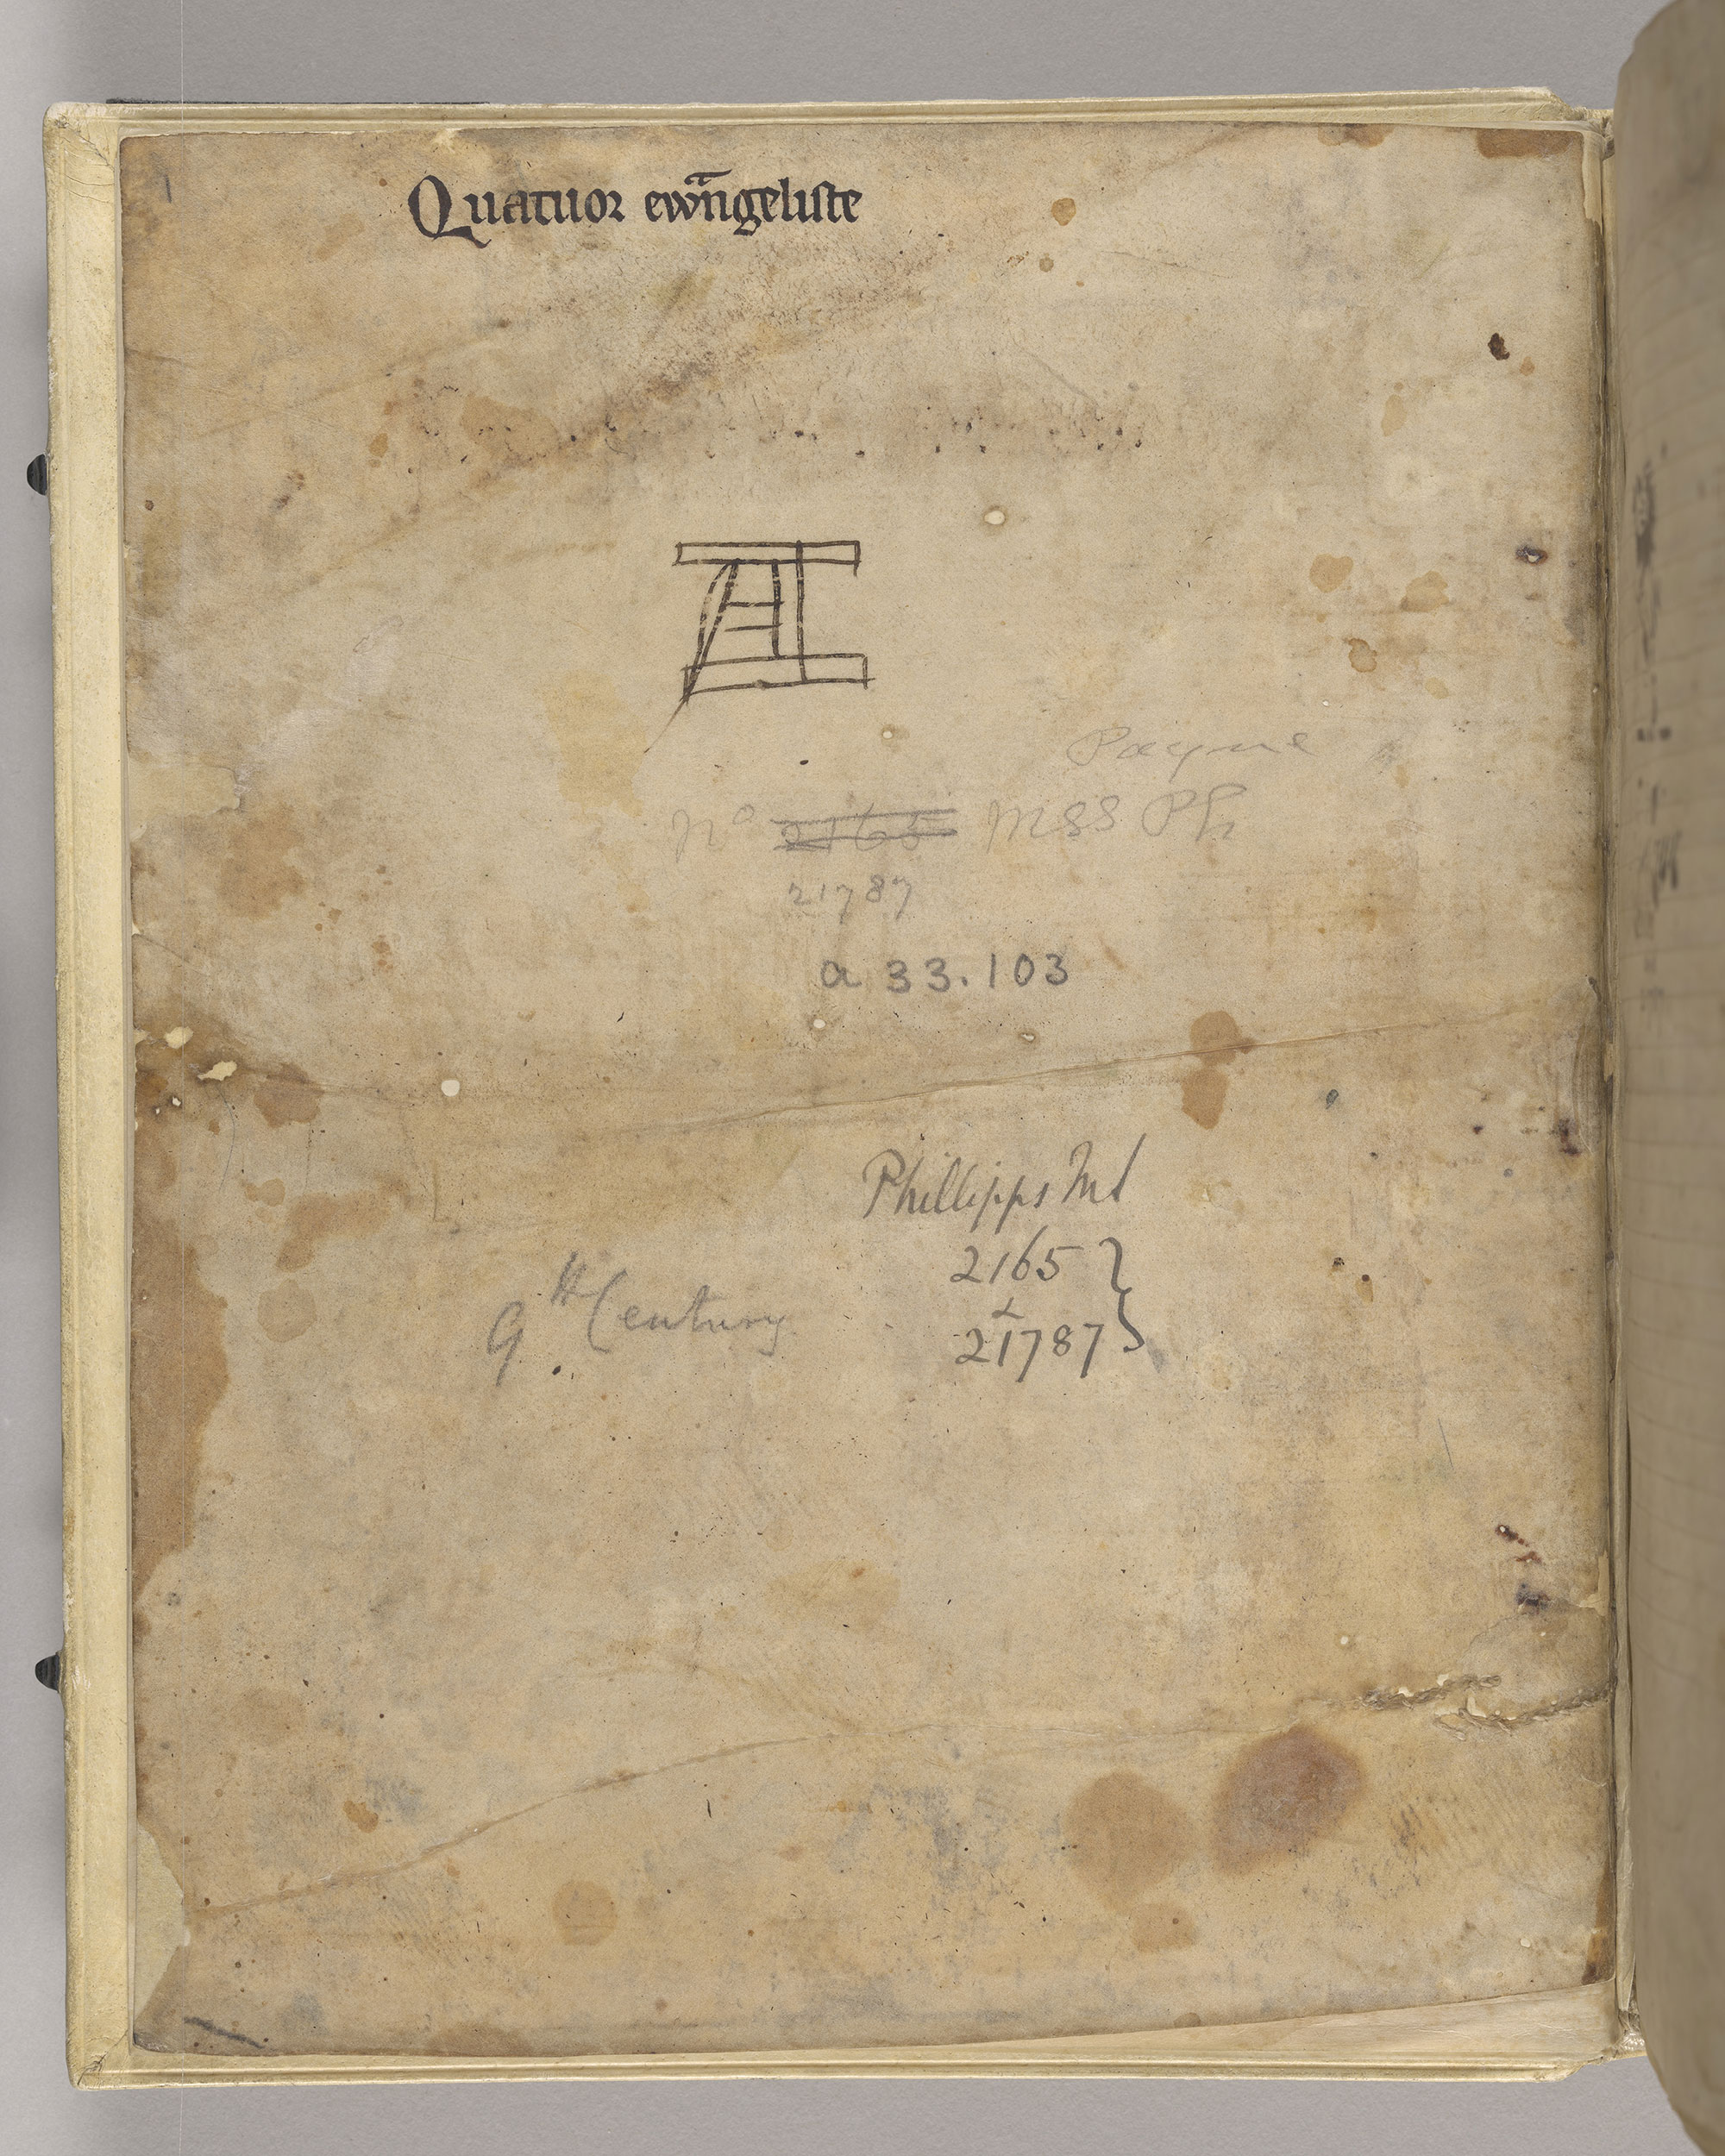 Quatuor ewãngeliste
Payne
No 2165 MSS Ph
21787
a 33.103
Phillipps MS
2165
&
21787
9th Century